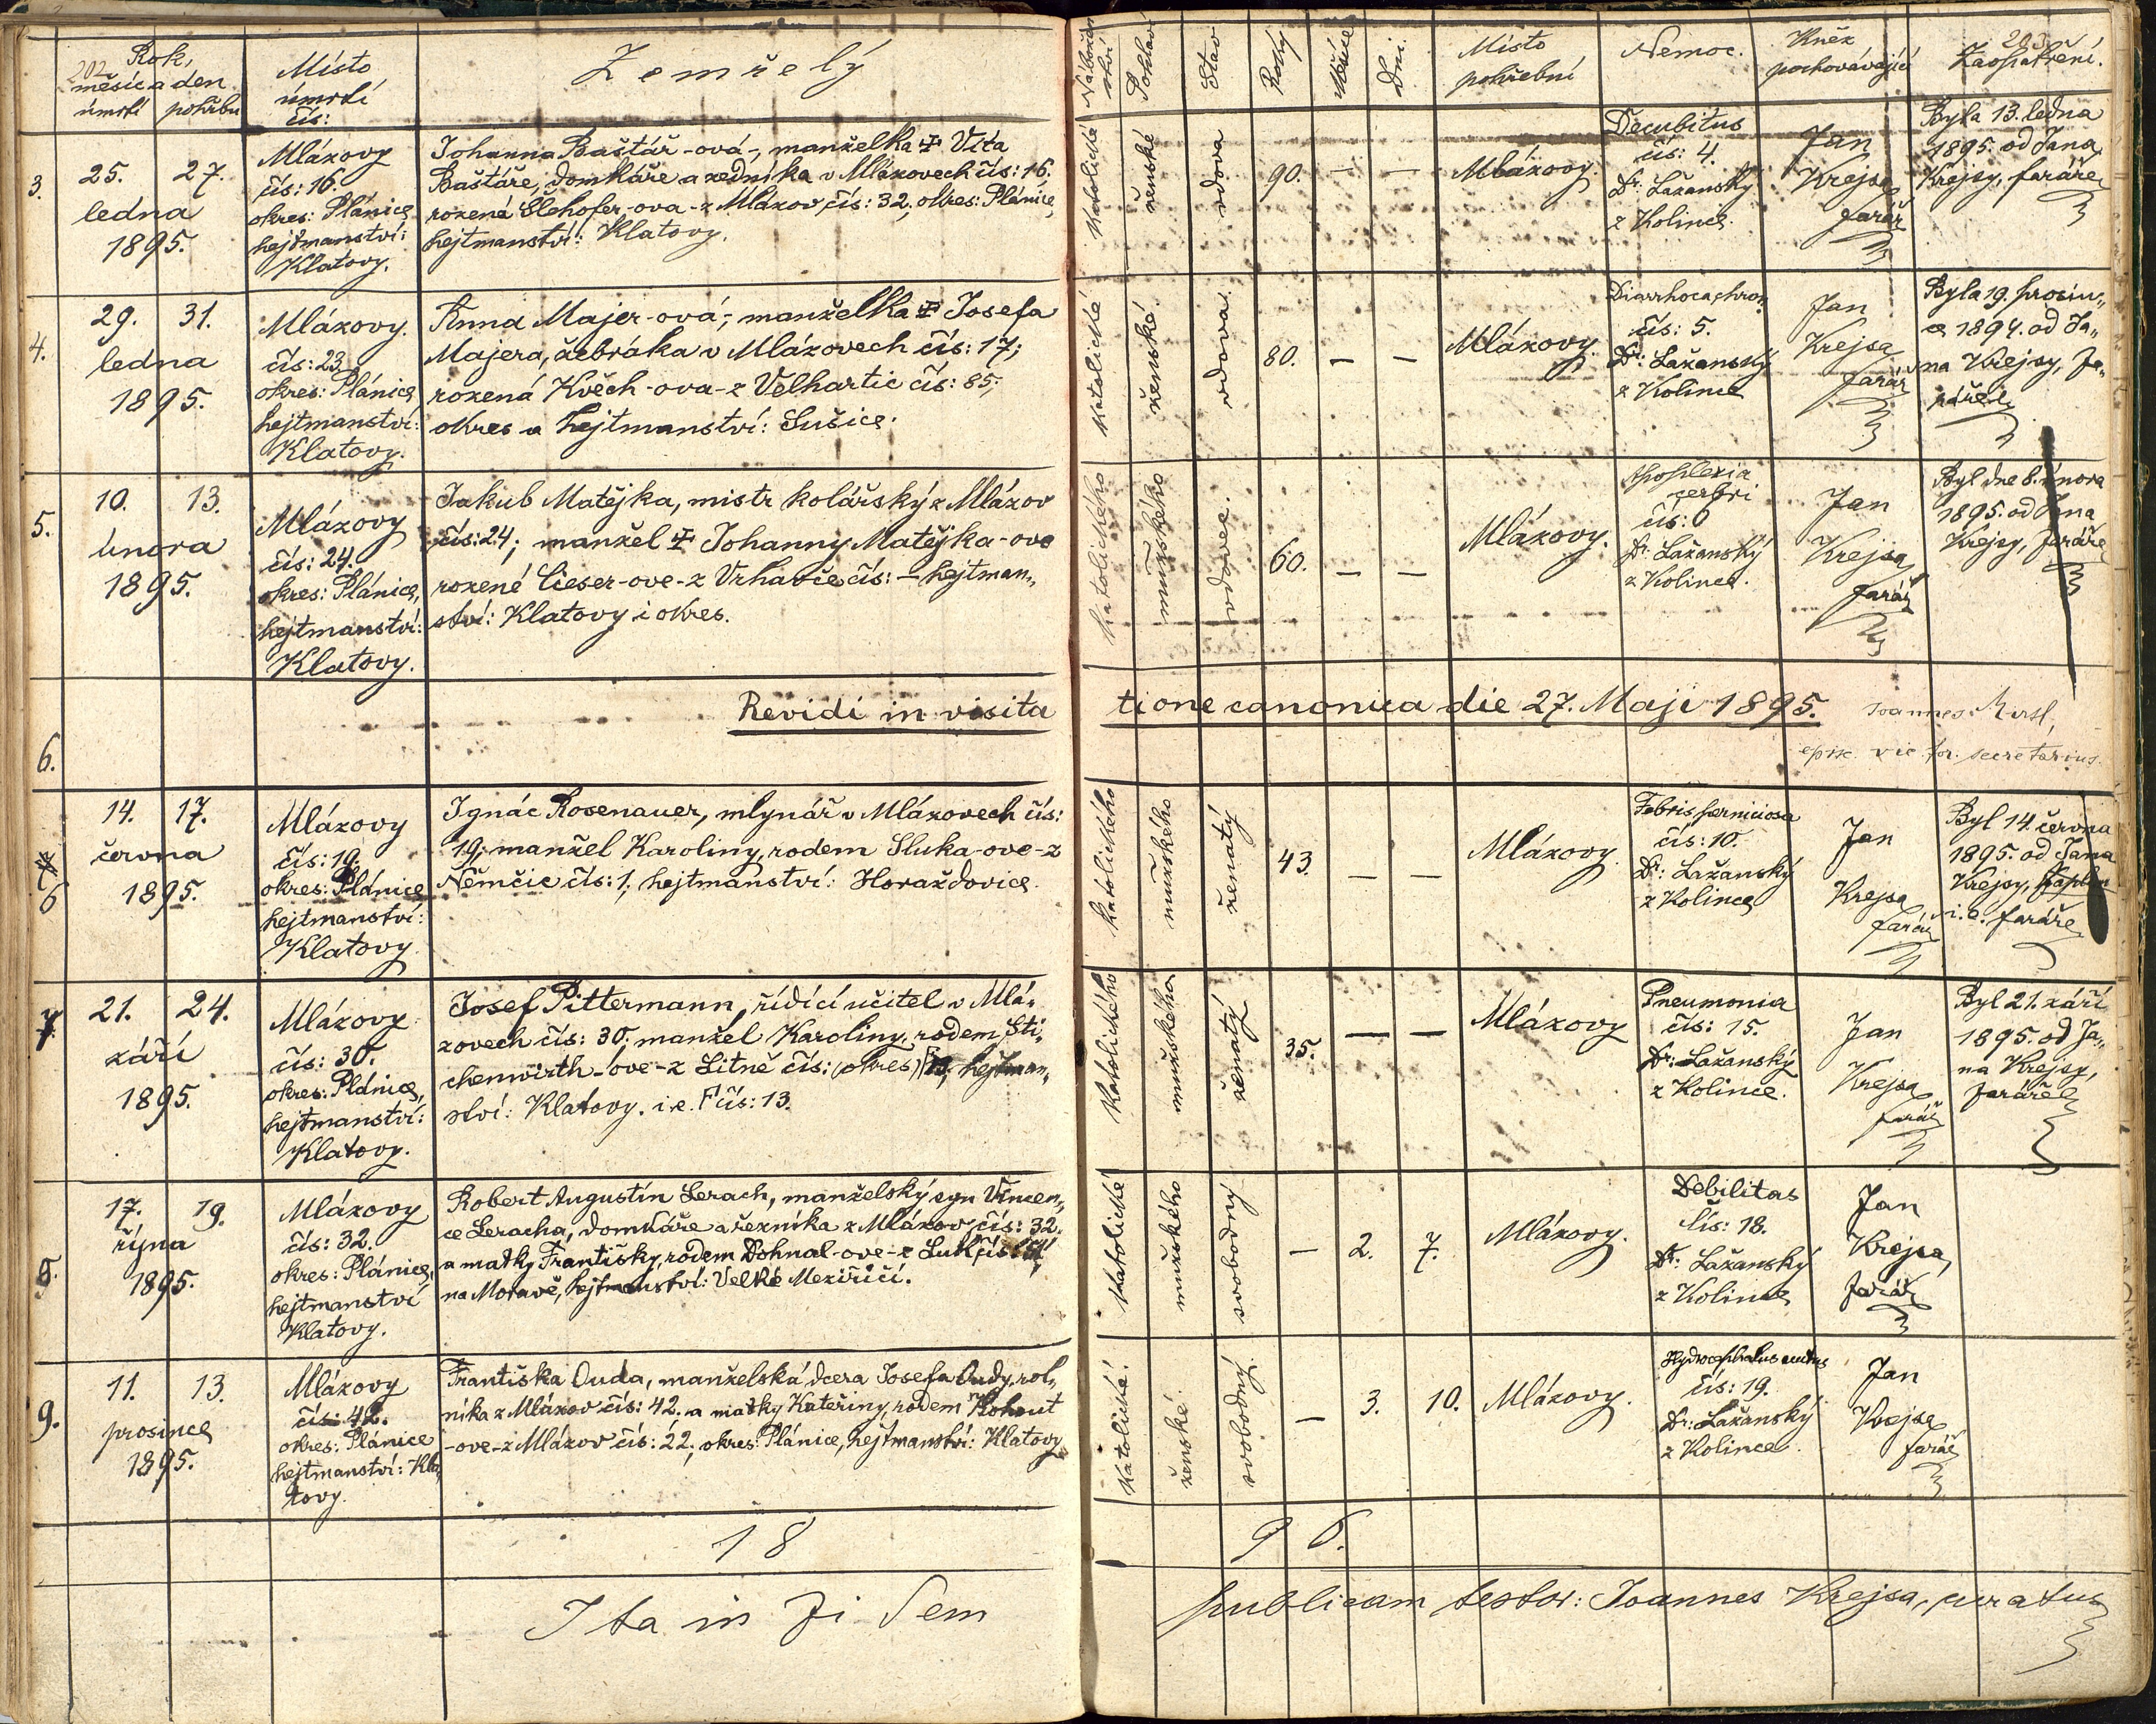 202
Rok,
měsíc a den
úmrtí pohřbu
Místo
úmrtí
čís:
Zemřelý
3.
25. 27.
ledna
1895.
Mlázovy
čís: 16.
okres: Plánice
hejtmanství:
Klatovy.
Johanna Baštář-ová-, manželka ✠ Víta
Baštáře, domkáře a zedníka v Mlázovech čís: 16.
rozená Šlehofer-ova-z Mlázov čís: 32, okres: Plánice,
hejtmanství: Klatovy.
4.
29. 31.
ledna
1895.
Mlázovy.
čís: 23
okres: Plánice
hejtmanství:
Klatovy.
Anna Majer-ová-, manželka ✠ Josefa
Majera, žebráka v Mlázovech čís: 17;
rozená Kvěch-ova-z Velhartic čís: 85;
okres a hejtmanství: Sušice.
5.
10. 13.
února
1895.
Mlázovy
čís: 24.
okres: Plánice,
hejtmanství:
Klatovy.
Jakub Matějka, mistr kolářský z Mlázov
čís: 24; manžel ✠ Johanny Matějka-ove
rozené Cieser-ove-z Vrhavče čís: — hejtman„
ství: Klatovy i okres.
6.
Revidi in visita
6
14. 17.
června
1895.
Mlázovy
čís: 19.
okres: Plánice
hejtmanství:
Klatovy.
Ignác Rosenauer, mlynář v Mlázovech čís:
19; manžel Karoliny, rodem Sluka-ove-z
Němčic čís: 1, hejtmanství: Horažďovice.
7.
21. 24.
září
1895.
Mlázovy
čís: 30.
okres: Plánice,
hejtmanství:
Klatovy.
Josef Pittermann, řídící učitel v Mlá„
zovech čís: 30; manžel Karoliny, rodem Sti„
chenwirth-ove-z Litně čís: (okres) hejtman„
ství: Klatovy. i.e. Γ čís: 13.
8.
17. 19.
října
1895.
Mlázovy
čís: 32.
okres: Plánice,
hejtmanství
Klatovy.
Robert Augustín Lerach, manželský syn Vincen„
ce Leracha, domkáře a řezníka z Mlázov čís: 32.
a matky Františky, rodem Dohnal-ove-z Luk čís:
na Moravě, hejtmanství: Velké Meziříčí.
9.
11. 13.
prosince
1895.
Mlázovy
čís: 42.
okres: Plánice
hejtmanství: Kla„
tovy.
Františka Ouda, manželská dcera Josefa Oudy, rol„
níka z Mlázov čís: 42. a matky Kateřiny, rodem Kohout
-ove-z Mlázov čís: 22, okres: Plánice, hejtmanství: Klatovy
18
Ita in fi dem
203
Nábožen
ství
Pohlaví
Stav
Roky
Měsíce
Dni.
Místo
pohřební
Nemoc.
Kněz
pochovávající
Zaopatření.
Katolické
ženské
vdova
90. — —
Mlázovy.
Decubitus
čís: 4.
Dr: Lažanský
z Kolince.
Jan
Krejsa
farář
Byla 13. ledna
1895. od Jana
Krejsy, faráře
Katolické
ženské.
vdova.
80. — —
Mlázovy.
Diarrhoea chron.
čís: 5.
Dr: Lažanský
z Kolince
Jan
Krejsa
farář
Byla 19. prosin„
ce 1894. od Ja„
na Krejsy, fa„
ráře
katolického
mužského
vdovec.
60. — —
Mlázovy.
Apoplexia
cerbri
čís: 6
Dr: Lažanský
z Kolince.
Jan
Krejsa
farář
Byl dne 8. února
1895. od Jana
Krejsy, faráře
tione canonica die 27. Maji 1895.
Joannes
episc. vic. for. secretarius.
katolického
mužského
ženatý
43. — —
Mlázovy.
Febris perniciosa
čís: 10.
Dr: Lažanský
z Kolince
Jan
Krejsa
farář
Byl 14. června
1895. od Jana
Krejsy, kaplan
i.e. faráře
Katolického
mužského
ženatý
35. — —
Mlázovy
Pneumonia
čís: 15.
Dr: Lažanský
z Kolince.
Jan
Krejsa
farář
Byl 21. září
1895. od Ja„
na Krejsy,
faráře
Katolické
mužského
svobodný
— 2. 7.
Mlázovy.
Debilitas
čís: 18.
Dr: Lažanský
z Kolince
Jan
Krejsa,
farář
Katolické.
ženské.
svobodný.
— 3. 10.
Mlázovy.
Hydrocephalus acutus
čís: 19.
Dr: Lažanský
z Kolince.
Jan
Krejsa
farář
9 5.
publicam testor: Joannes Krejsa, curatus